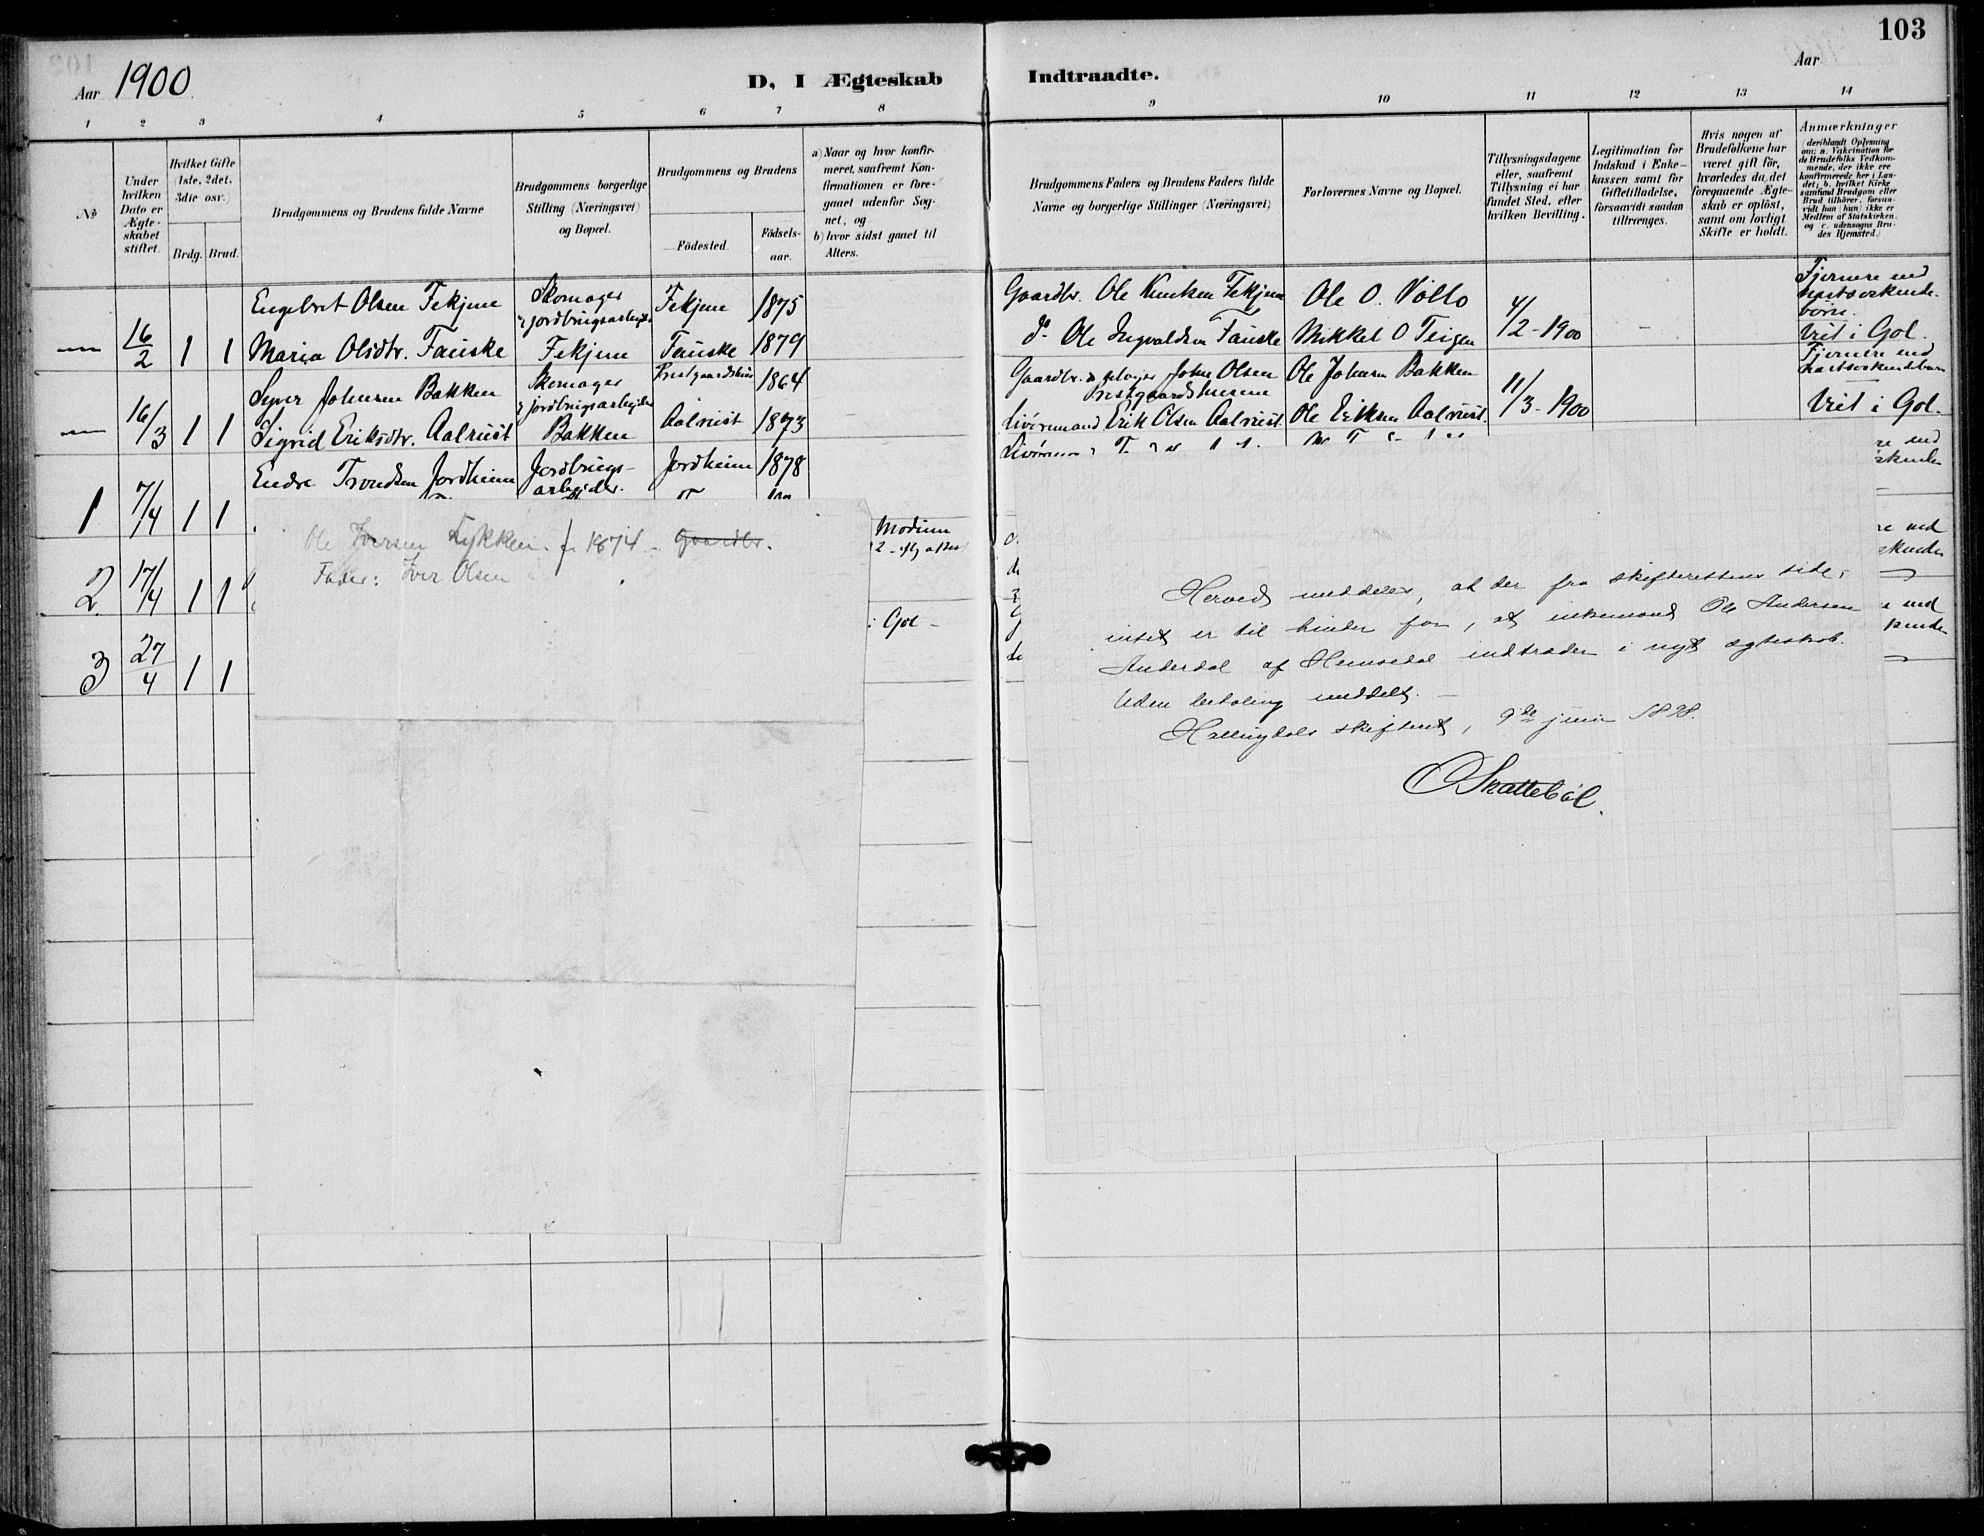 103
Aar 1900.
D, I Ægteskab Indtraadte.
Aar
1 2 3 4 5 6 7 8 9 10 11 12 13 14
No
Under hvilken Dato er Ægteskabet stiftet.
Hvilket Gifte (1ste, 2det, 3die osv.)
Brdg. Brud.
Brudgommens og Brudens fulde Navne
Brudgommens borgerlige Stilling (Næringsvei) og Bopæl.
Brudgommens og Brudens
Födested.
Födsels-aar.
a) Naar og hvor konfir-
meret, saafremt Kon-
firmationen er fore-
gaaet udenfor Sog-
net, og
b) hvor sidst gaaet til
Alters.
Brudgommens Faders og Brudens Faders fulde
Navne og borgerlige Stillinger (Næringsvei)
Forlovernes Navne og Bopæl.
Tillysningsdagene
eller, saafremt
Tillysning ei har
fundet Sted, efter
hvilken Bevilling.
Legitimation for
Indskud i Enke-
kassen samt for
Giftetilladelse,
forsaavidt saadan
tiltrænges.
Hvis nogen af
Brudefolkene har
været gift för,
hvorledes da det
foregaaende Ægte-
skab er oplöst,
samt om lovligt
Skifte er holdt.
Anmærkninger
(deriblandt Oplysning
om: a. Vakcination for
de Brudefolks Vedkom-
mende, der ikke ere
konfirmerede her i Lan-
det; b. hvilket Kirke
samfund Brudgom eller
Brud tilhörer, forsaa-
vidt han (hun) ikke er
Medlem af Statskirken,
og c. udensogns Bru-
des Hjemsted.)
Engebret Olsen Fekjene Skomager Fekjene 1875 Gaardbr. Ole Knutsen Fekjene Ole O. Vollo 4/2-1900 Fjernere end
& jordbrugsarbejder
16/2 1 1 Maria Olsdtr. Fauske Fekjene Fauske 1879 do Ole Ingvaldsen Fauske Mikkel O Teigen Viet i Gol.
Syver Johnsen Bakken Skomager 1864 Gaardbr. John Olsen Ole Johnsen Bakken 11/3-1900 Fjernere end
& jordbrugsarbejder
16/3 1 1 Sigrid Eriksdtr. Aalrust Bakken Aalrust 1873 Erik Olsen Aalrust Ole Eriksen Aalrust. Viet i Gol.
1 7/4 1 1 Endre Trondsen Jordheim Jordbrugs-
arbejder. Jordheim 1878
2 17/4 1 1
3 27/4 1 1
Ole Iversen Lykken. f 1874 - Gaardbr.
Fader: Iver Olsen
Modum
i Gol -
Herved meddeles, at der fra skifterettens side,
intet er til hinder for, at enkemand Ole Andersen
Anderdal af Hemsedal indtræder i nyt ægteskab.
Uden betaling meddelt. -
Hallingdals skifteret, 9de juni 1898.
O Skattebøl.